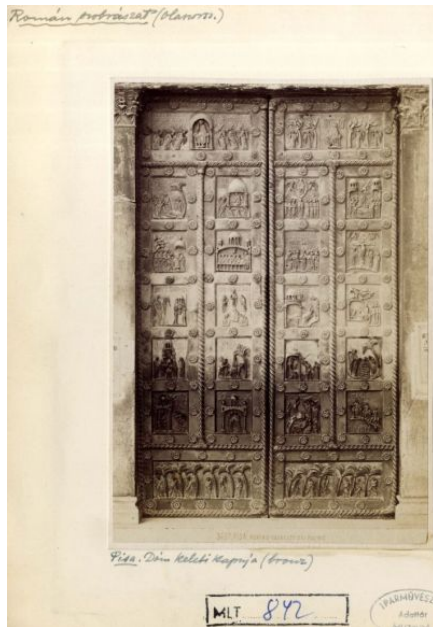 Román szobrászat (olaszorsz.)
Pisa. Dóm keleti kapuja (bronz)
MLT 842
IPARMŰVÉSZ
Adattár